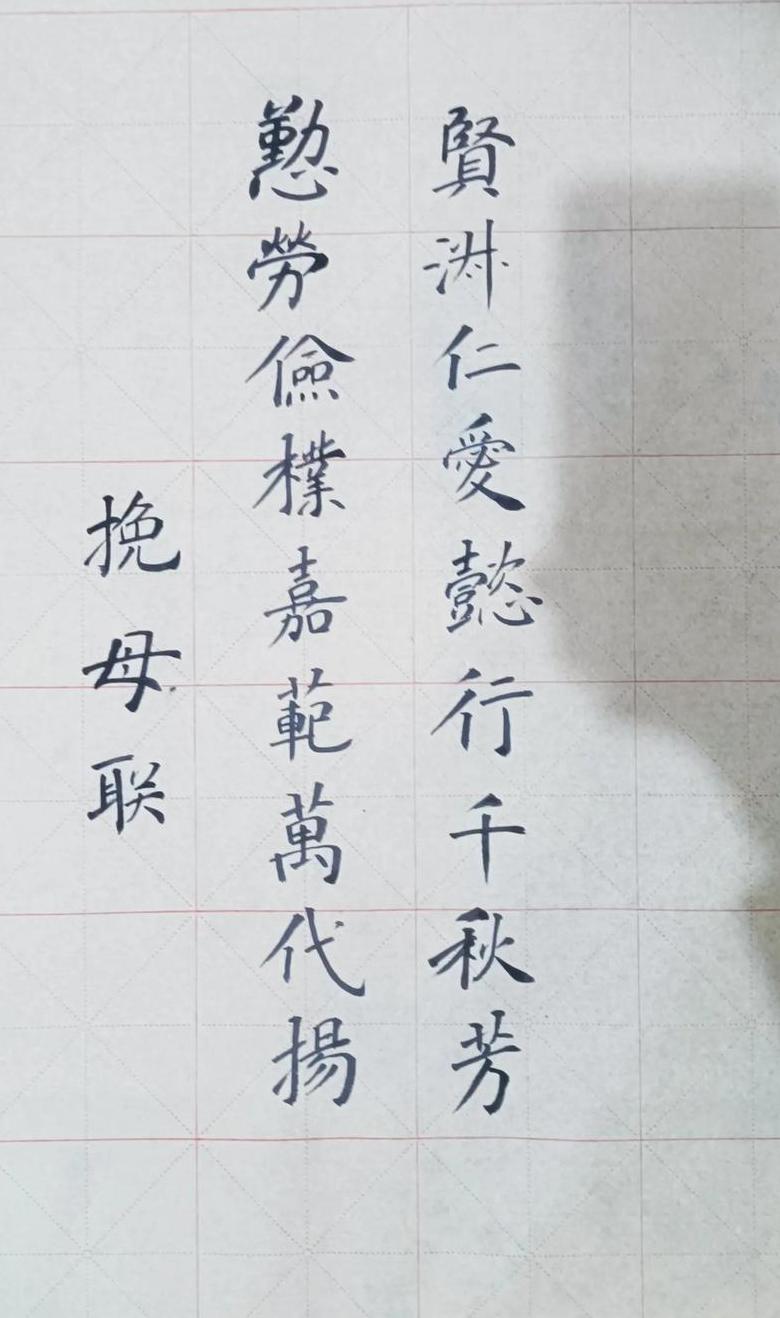 賢淋仁愛懿行千秋芳
懃勞儉樸嘉範萬代揚
挽母联